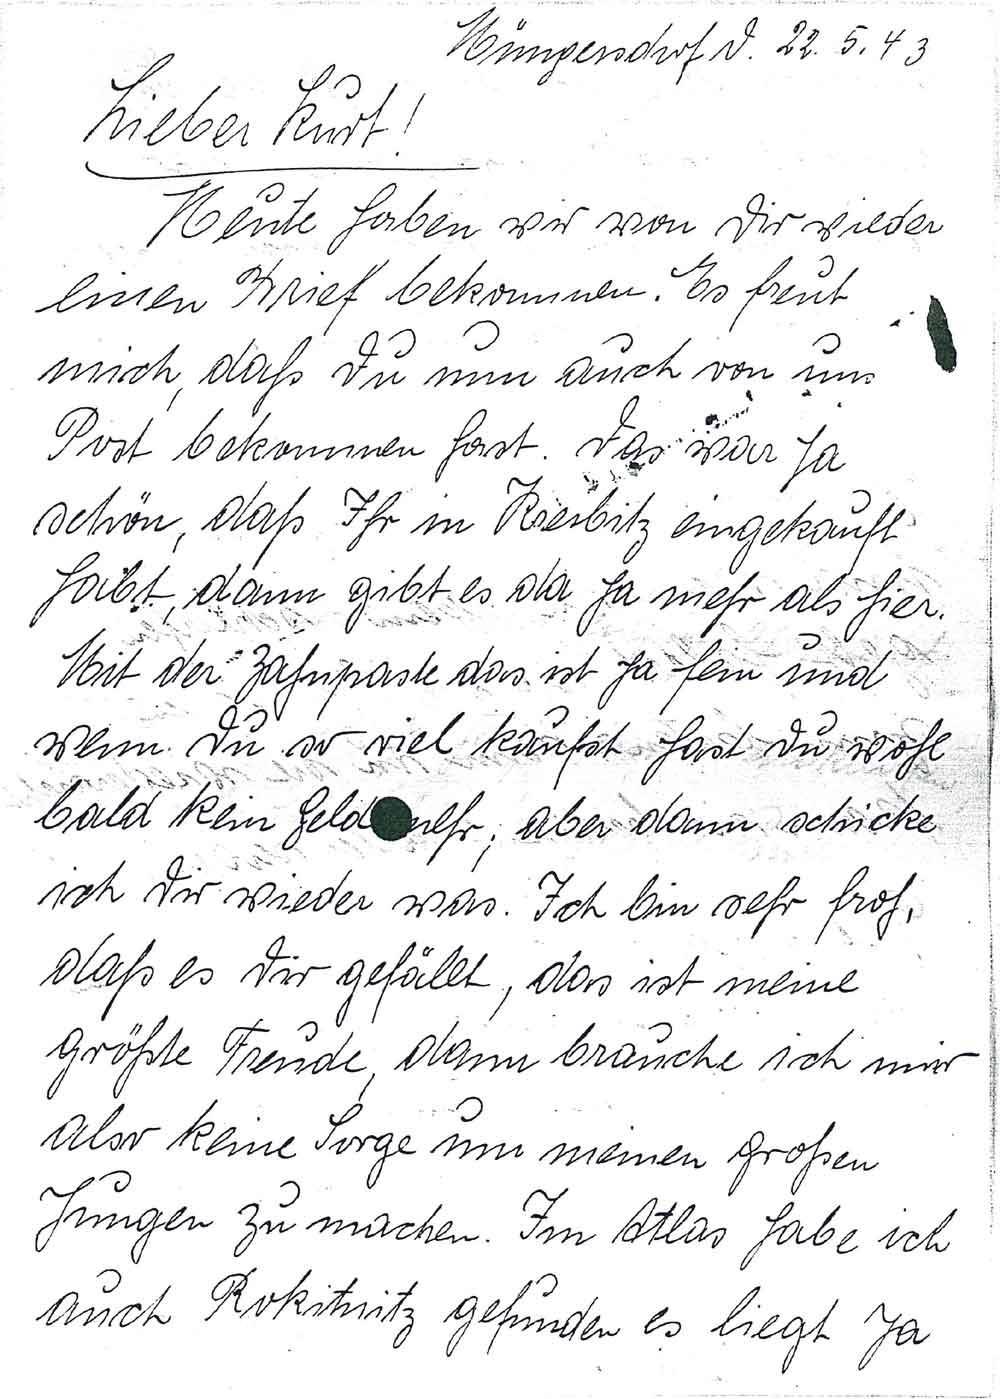 Müngersdorf d. 22. 5. 43
Lieber Kurt!
Heute haben wir von Dir wieder
einen Brief bekommen. Es freut
mich, daß Du nun auch von uns
Post bekommen hast. Das war ja
schön, daß Ihr in Kreibitz eingekauft
habt, dann gibt es da ja mehr als hier.
Mit der Zahnpaste das ist ja fein und
wenn Du so viel kaufst hast Du wohl
bald kein Geld mehr, aber dann schicke
ich Dir wieder was. Ich bin sehr froh,
daß es Dir gefällt, das ist meine
größte Freude, dann brauche ich mir
also keine Sorge um meinen großen
Jungen zu machen. Im Atlas habe ich
auch Rokitnitz gefunden es liegt ja